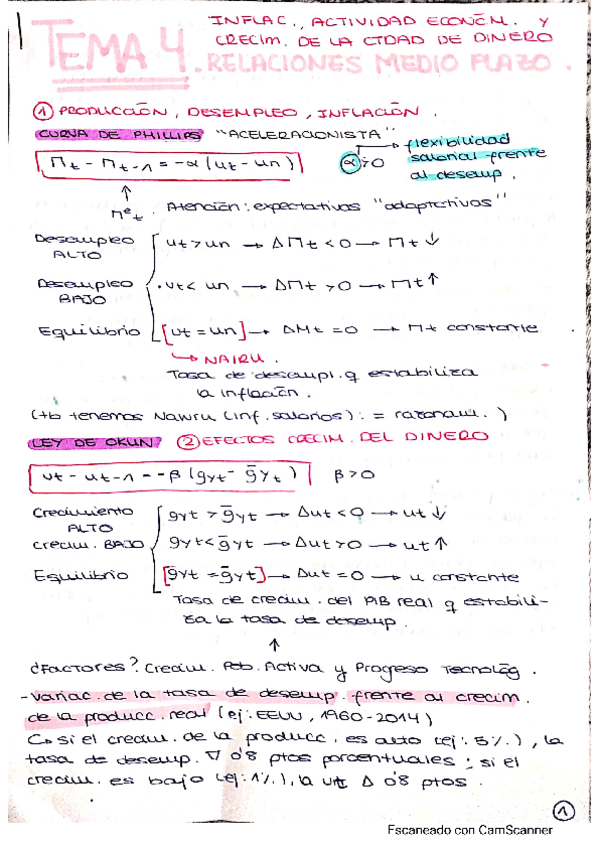 INFLAC., ACTIVIDAD ECONÓM. Y
CRECIM. DE LA CTDAD DE DINERO
TEMA 4. RELACIONES MEDIO PLAZO.
① PRODUCCIÓN, DESEMPLEO, INFLACIÓN.
CURVA DE PHILLIPS "ACELERACIONISTA"
Πt - Πt-1 = -α (ut - un)
α>0 → flexibilidad
salarial frente
al desemp.
↑
Πᵉt. Atención: expectativas "adaptativas"
Desempleo ALTO ut > un → ΔΠt < 0 → Πt ↓
Desempleo BAJO · ut < un → ΔΠt > 0 → Πt ↑
Equilibrio [ut = un] → ΔΠt = 0 → Πt constante
↳ NAIRU.
Tasa de desempl. q estabiliza
la inflación.
(tb tenemos Nawru (inf. salarios): = razonam.)
LEY DE OKUN ② EFECTOS CRECIM. DEL DINERO
ut - ut-1 = -β (gyt - ḡyt) β>0
Crecimiento ALTO gyt > ḡyt → Δut < 0 → ut ↓
crecim. BAJO gyt < ḡyt → Δut > 0 → ut ↑
Equilibrio [gyt = ḡyt] → Δut = 0 → u constante
Tasa de crecim. del PIB real q estabili-
za la tasa de desemp.
↑
¿Factores? Crecim. Pob. Activa y Progreso Tecnológ.
- Variac. de la tasa de desemp. frente al crecim.
de la producc. real (ej: EEUU, 1960-2014)
↳ si el crecim. de la producc. es alto (ej: 5%.), la
tasa de desemp. ∇ 0'8 ptos porcentuales; si el
crecim. es bajo (ej: 1%.), la ut Δ 0'8 ptos.
①
Escaneado con CamScanner